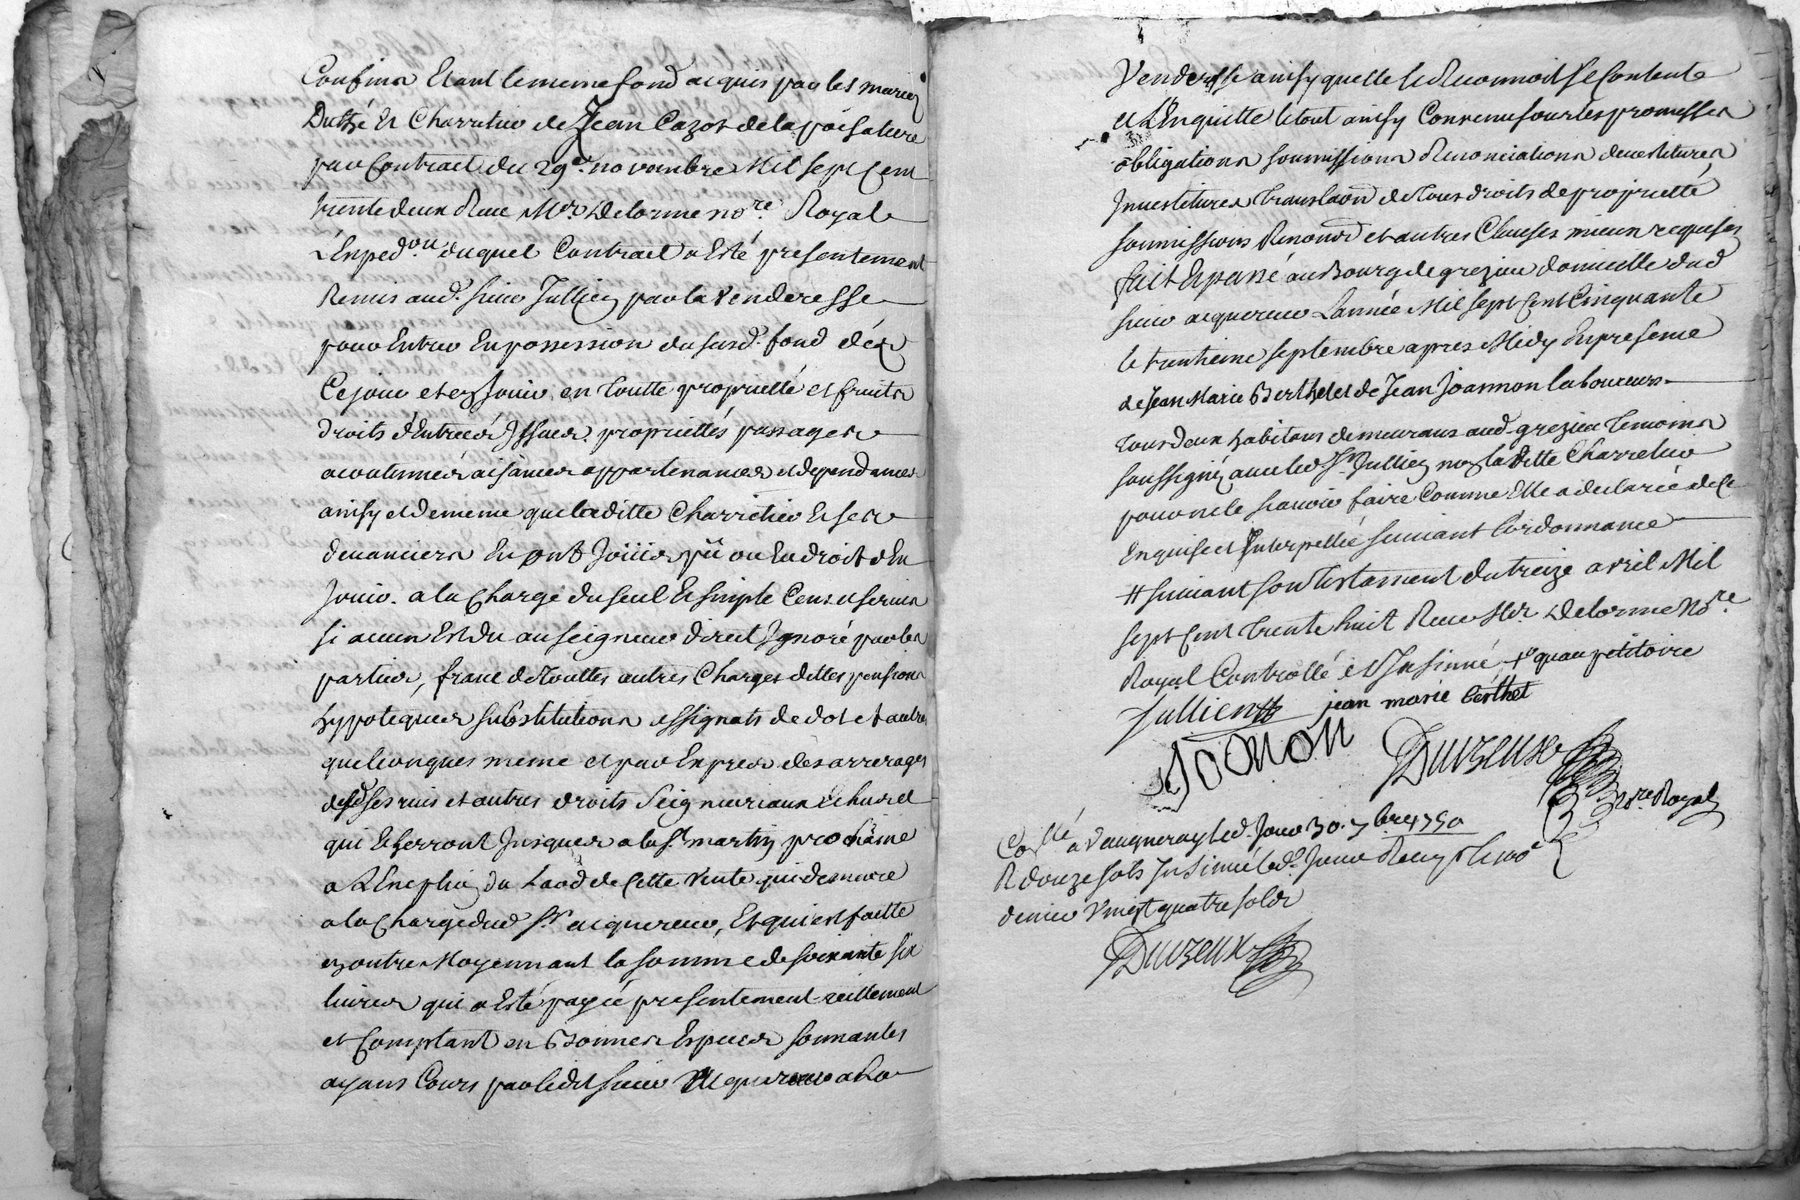 Confins Etant le meme fond acquis par les mariez
Duttré Et Charretier de Jean Cazot de la poisatiere
par Contract du 29e. novembre Mil sept Cent
trente deux Receu Mer. Delorme nore. Royal
L'Exped.on duquel Contract a Esté presentement
Remis aud. sieur Jullien par la Venderesse
pour Entrer En possession du susd. fond dez
Ce jour et en Jouir en toutte proprietté et fruits
droits d'Entreés Issües proprietés passages
acoutumeés aisances appartenances et dependances
ainsy et de meme que laditte Charretier Et ses
devanciers En ont Joüis pü ou Eu droit d'En
Jouir. a la Charge du seul Et simple Cens et servis
si aucun Est du au seigneur direct Ignoré par les
parties, franc de touttes autres Charges dettes pensions
hypoteques substitutions assignats de dot et autres
quelconques meme et par Exprès des arrerages
desd. servis et autres droits seigneuriaux Echus et
qui Echerront Jusques a la St. martin prochaine
a L'Exception du Laod de Cette Vente qui demeure
a la Charge dud. Sr. acquereur, Et qui est faitte
en outre Moyennant la somme de soixante six
livres qui a Esté payeé presentement reellement
et Comptant en Bonnes Especes sonnantes
ayans Cours par ledit sieur Acquereur a La
Venderesse ainsy quelle le Reconnoit Se Contente
et L'En quitte le tout ainsy Convenu sous les promesses
obligations soumissions Renonciations devestitures
Investitures translaon de tous droits de proprietté
soumissions Renonons et autres Clauses mieux requises
fait Et passé au Bourg de grezieu domicille dud.
sieur acquereur L'année Mil sept Cent Cinquante
le trantieme septembre apres Midy En presence
de Jean Marie Berthet et de Jean Joannon laboureurs
tous deux habitans demeurans aud. grezieu temoins
soussignéz avec led. Sr. Jullien non laditte Charretier
pour ne le scavoir faire Comme Elle a declareé de Ce
Enquise et Interpelleé suivant L'ordonnance
# suivant son testament du treize avril Mil
sept Cent trente huit Receu Mer. Delorme Nore.
Royal Controllé et Insinué quau petitoire
Jullien jean marie berthet
Joanon Duvzeux
Nre Royal
Collé a Vaugneray led. Jour 30. 7bre 1750
R douze sols Insinué led. Jour
denier Vingt quatre sols
Duvzeux